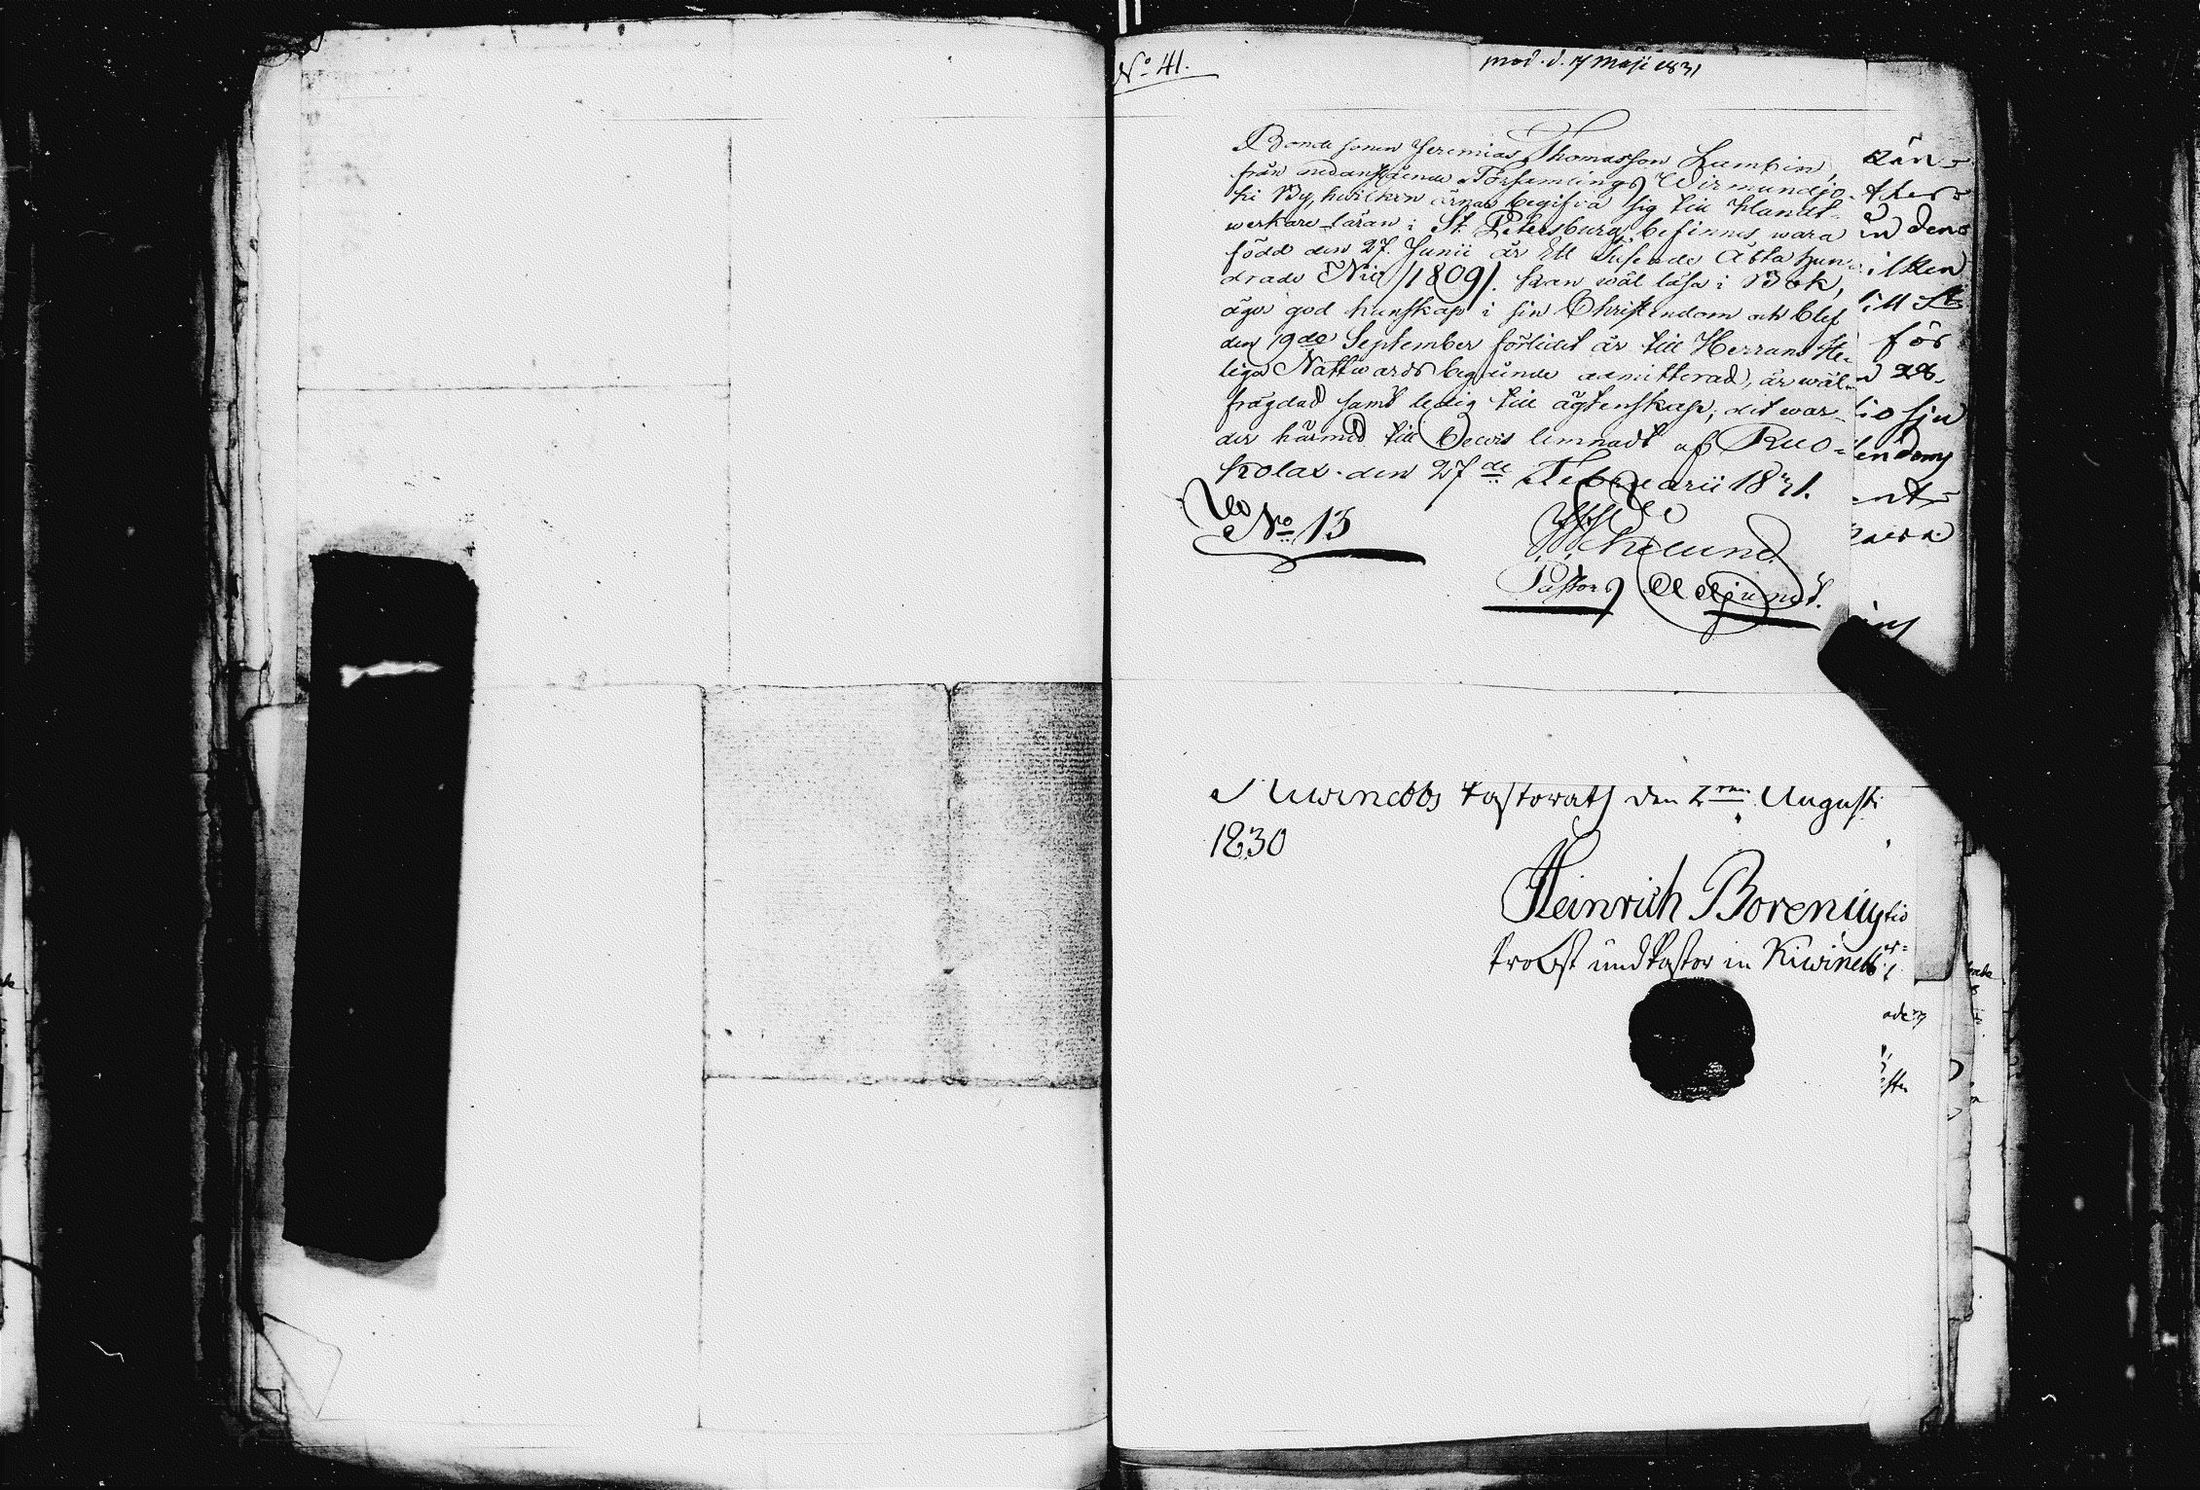 No 41.
prod. d. 17 Maji 1831
Bonde sonen Jeremias Thomasson Lambin,
från nedanstående Församlings Wirmundjo-
ki By, hwilken ärnar begifva sig till Handt-
werkare läran i St. Petersburg, befinnes wara
född den 27. Junii år Ett tusende Åtta hun-
drade Nio /1809/. kan wäl läsa i Bok,
äger god kunskap i sin Christendom och blef
den 19de September förledit år till Herrans He-
liga Nattwards begående admitterad, är wäl
frägdad samt ledig till ägtenskap; det war-
der härmed till bewis lemnadt af Ruo-
kolax den 27de Februarii 1831.
No 13
Pastors Adjunct.
Kiwinebbs Pastorath den 2ten Augusti
1830
Heinrich Borenius
Probst und Pastor in Kiwinebb
kän-
ther
in dens
ilken
till St
för
sju
endoms